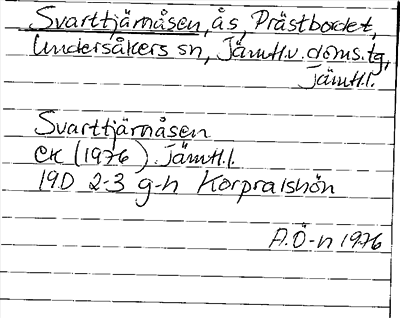 Svarttjärnåsen, ås, Prästbordet,
Undersåkers sn, Jämtl.v.doms.tg,
Jämtl.l.
Svarttjärnåsen
ek (1976) Jämtl.l.
19D 2-3 g-h Korpralshön
A.Ö-n 1976